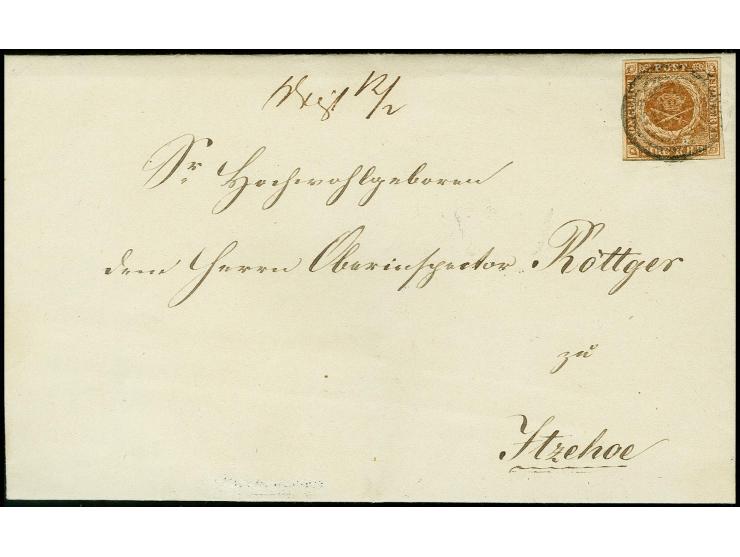 12/2
Sr Hochwohlgeboren
dem Herrn Oberinspector Röttger
zu
Itzehoe
POST